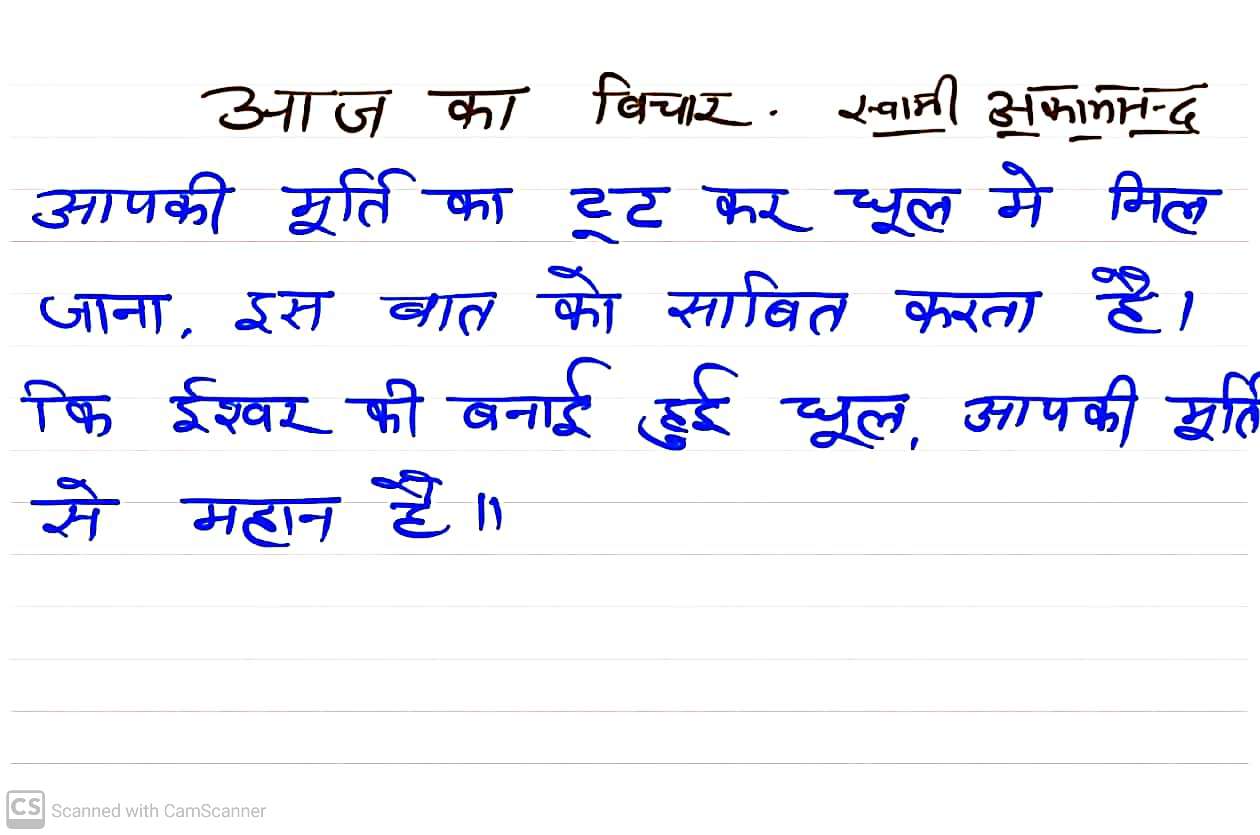 आज का विचार. स्वामी अकालानन्द
आपकी मूर्ति का टूट कर धूल मे मिल
जाना, इस बात को साबित करता है।
कि ईश्वर की बनाई हुई धूल, आपकी मूर्ति
से महान है॥
CS Scanned with CamScanner